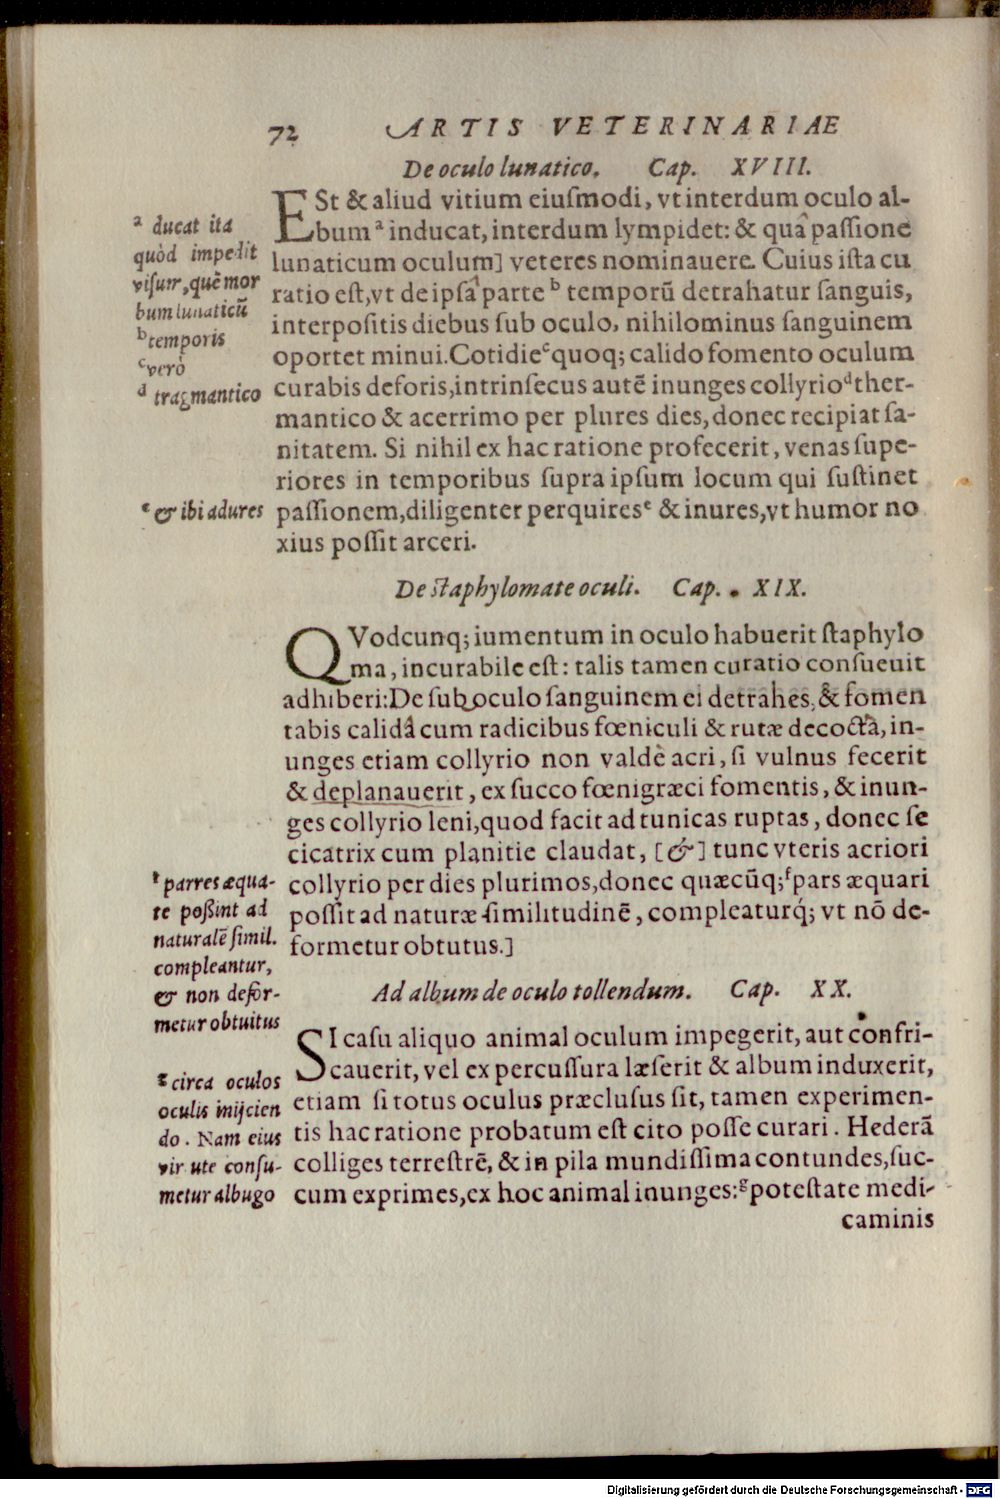 72 ARTIS VETERINARIAE
De oculo lunatico. Cap. XVIII.
ESt & aliud vitium eiuſmodi, vt interdum oculo al-
bum ᵃ inducat, interdum lympidet: & quâ paſſione
lunaticum oculum] veteres nominauere. Cuius iſta cu
ratio eſt, vt de ipſâ parte ᵇ temporũ detrahatur ſanguis,
interpoſitis diebus ſub oculo, nihilominus ſanguinem
oportet minui. Cotidie ᶜ quoq; calido fomento oculum
curabis deforis, intrinſecus autẽ inunges collyrio ᵈ ther-
mantico & acerrimo per plures dies, donec recipiat ſa-
nitatem. Si nihil ex hac ratione profecerit, venas ſupe-
riores in temporibus ſupra ipſum locum qui ſuſtinet
paſſionem, diligenter perquires ᵉ & inures, vt humor no
xius poſſit arceri.
ᵃ ducat ita
quòd impedit
viſum, quẽ mor
bum lunaticũ
ᵇ temporis
ᶜ verò
ᵈ tragmantico
ᵉ & ibi adures
De ſtaphylomate oculi. Cap. XIX.
QVodcunq; iumentum in oculo habuerit ſtaphylo
ma, incurabile eſt: talis tamen curatio conſueuit
adhiberi: De ſub oculo ſanguinem ei detrahes, & fomen
tabis calidâ cum radicibus fœniculi & rutæ decoctâ, in-
unges etiam collyrio non valdè acri, ſi vulnus fecerit
& deplanauerit, ex ſucco fœnigræci fomentis, & inun-
ges collyrio leni, quod facit ad tunicas ruptas, donec ſe
cicatrix cum planitie claudat, [&] tunc vteris acriori
collyrio per dies plurimos, donec quæcũq; ᶠ pars æquari
poſſit ad naturæ ſimilitudinẽ, compleaturq́; vt nõ de-
formetur obtutus.]
ᶠ partes æqua-
te poßint ad
naturalẽ ſimil.
compleantur,
& non defor-
metur obtuitus
Ad album de oculo tollendum. Cap. XX.
SI caſu aliquo animal oculum impegerit, aut confri-
cauerit, vel ex percuſſura læſerit & album induxerit,
etiam ſi totus oculus præcluſus ſit, tamen experimen-
tis hac ratione probatum eſt cito poſſe curari. Hederã
colliges terreſtrẽ, & in pila mundiſſima contundes, ſuc-
cum exprimes, ex hoc animal inunges: ᵍ poteſtate medi-
caminis
ᵍ circa oculos
oculis inijcien
do. Nam eius
virtute conſu-
metur albugo
Digitalisierung gefördert durch die Deutsche Forschungsgemeinschaft - DFG